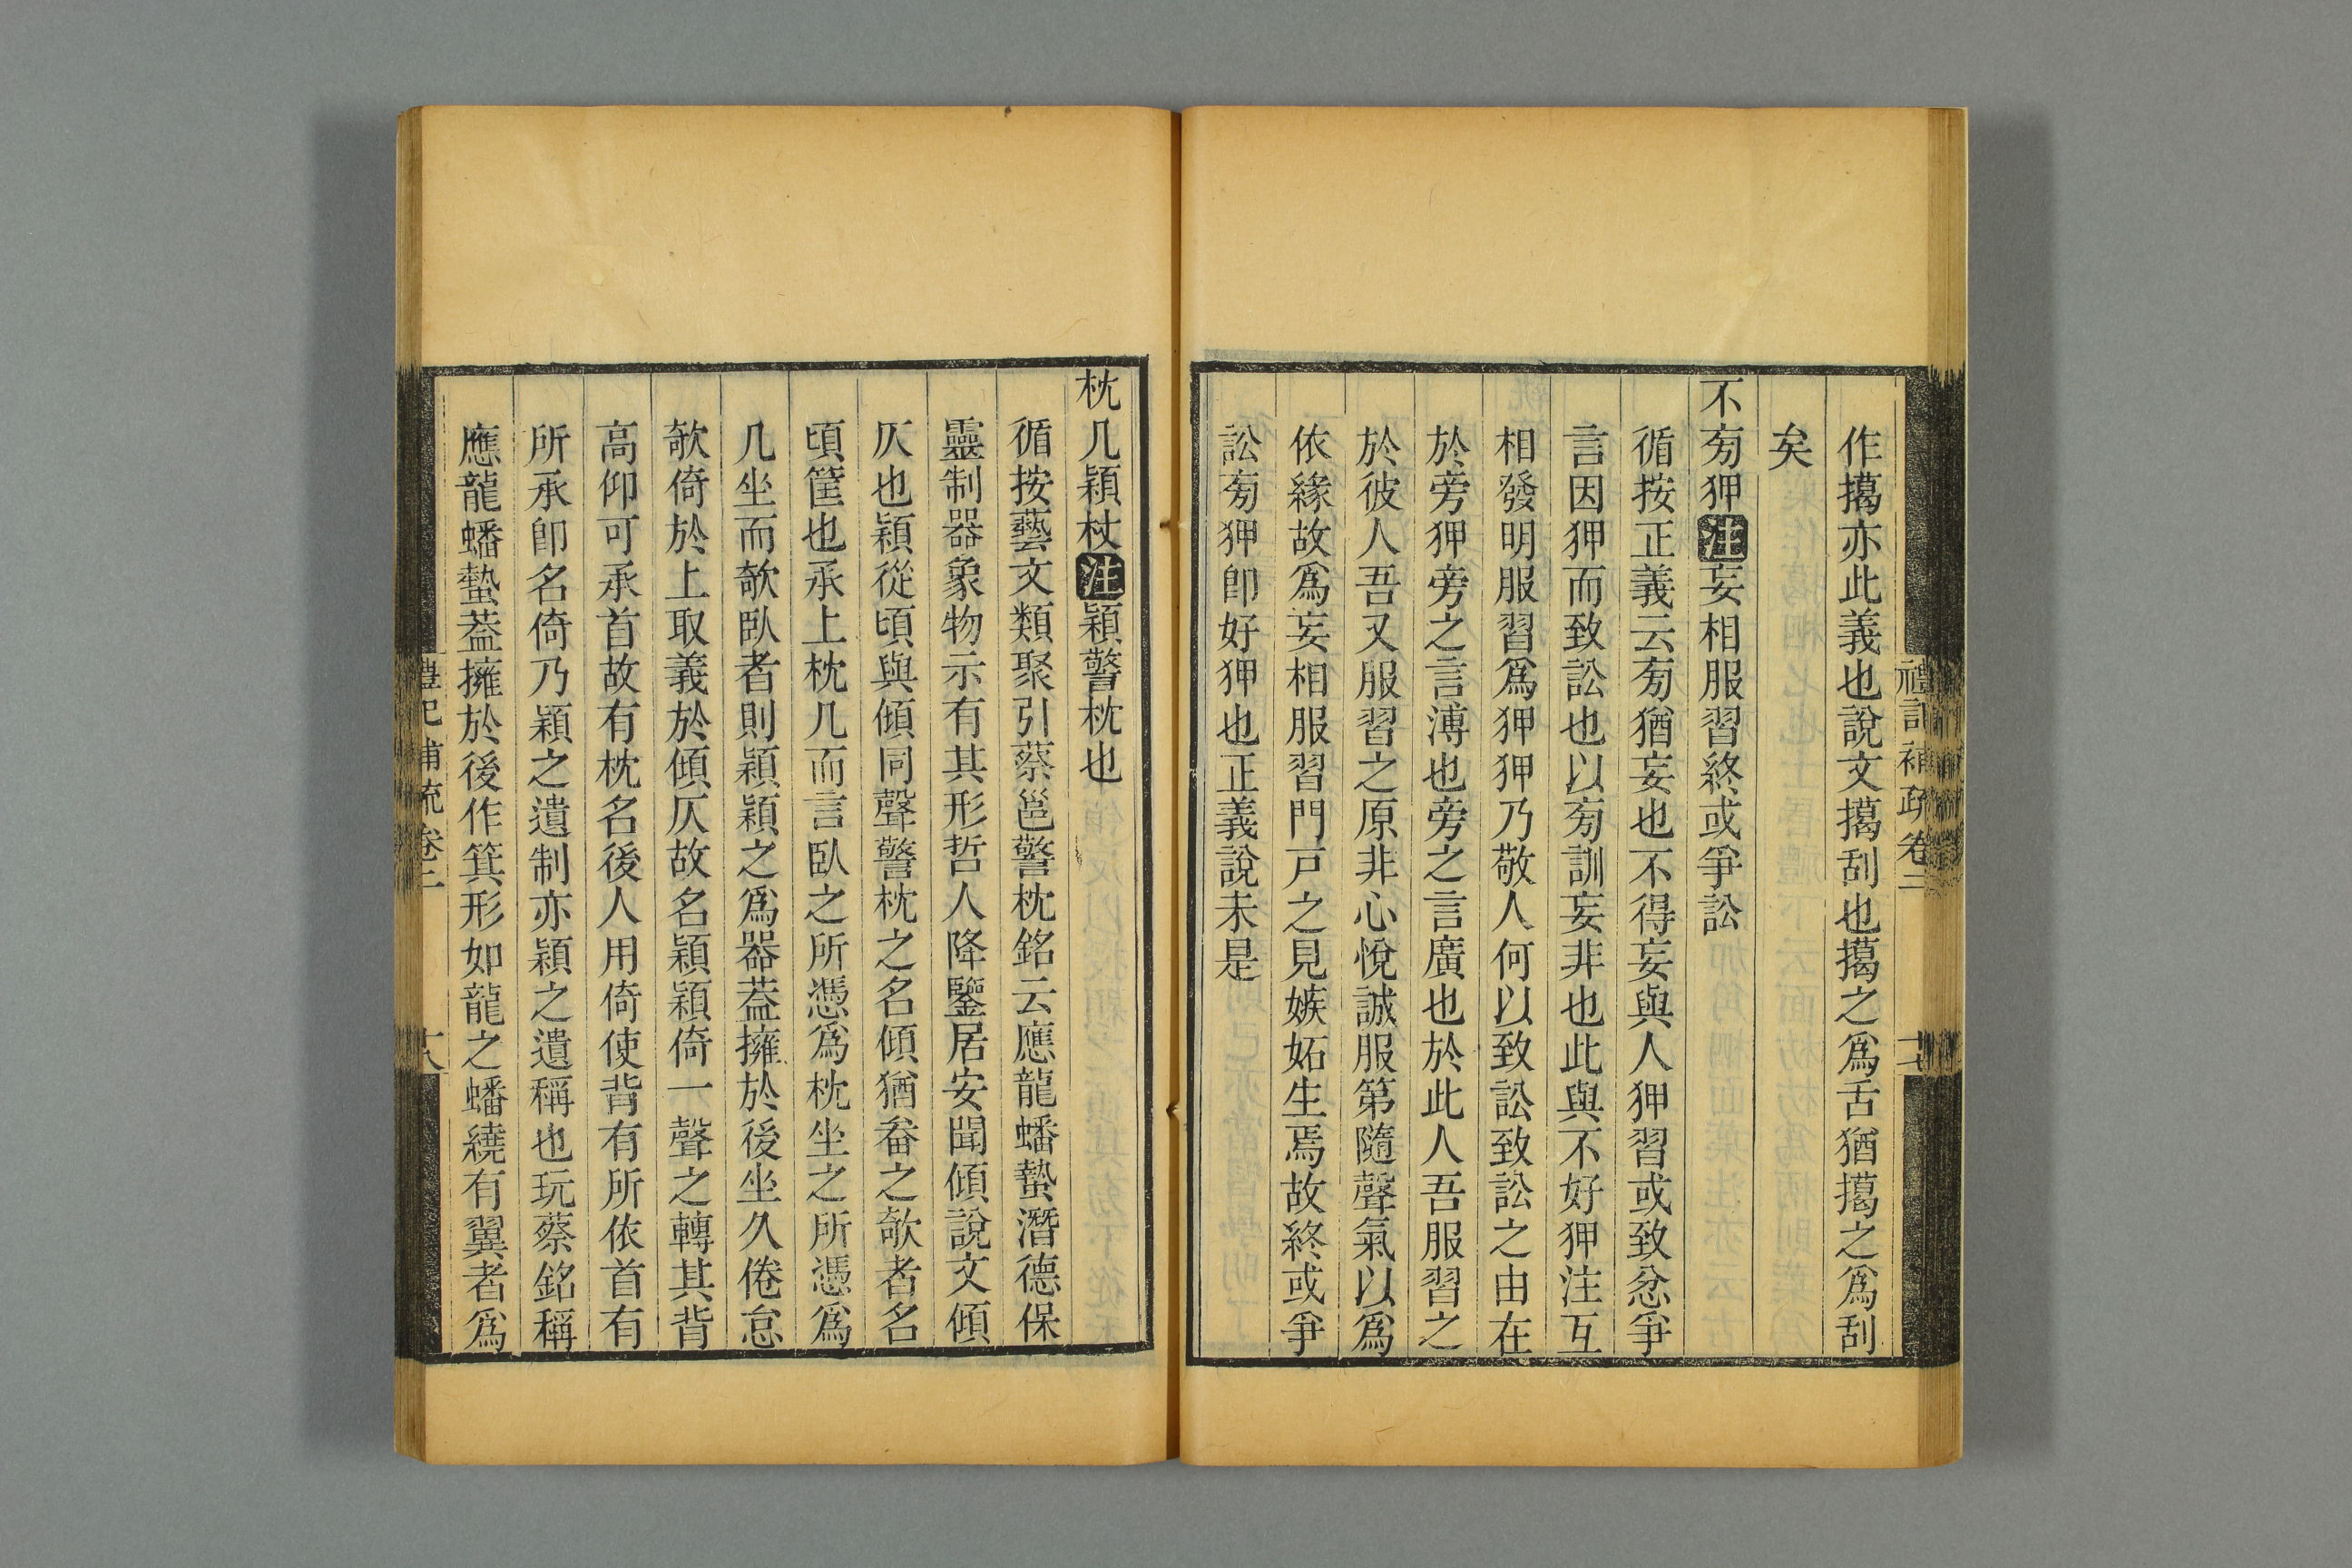 作擖亦此義也說文擖刮也擖之爲舌猶擖之爲刮
矣
不㫄狎注妄相服習終或爭訟
循按正義云㫄猶妄也不得妄與人狎習或致忿爭
言因狎而致訟也以㫄訓妄非也此與不好狎注互
相發明服習爲狎狎乃敬人何以致訟致訟之由在
於旁狎旁之言溥也旁之言廣也於此人吾服習之
於彼人吾又服習之原非心悅誠服第隨聲氣以爲
依緣故爲妄相服習門戸之見嫉妬生焉故終或爭
訟㫄狎卽好狎也正義說未是
禮記補疏卷三
十七
枕几穎杖注穎警枕也
循按藝文類聚引蔡邕警枕銘云應龍蟠蟄潛德保
靈制器象物示有其形哲人降鑒居安聞傾說文傾
仄也穎從頃與傾同聲警枕之名傾猶畚之欹者名
頃筐也承上枕几而言臥之所憑爲枕坐之所憑爲
几坐而欹臥者則穎穎之爲器蓋擁於後坐久倦怠
欹倚於上取義於傾仄故名穎穎倚一聲之轉其背
高仰可承首故有枕名後人用倚使背有所依首有
所承卽名倚乃穎之遺制亦穎之遺稱也玩蔡銘稱
應龍蟠蟄蓋擁於後作箕形如龍之蟠繞有翼者爲
禮記補疏卷三
十八